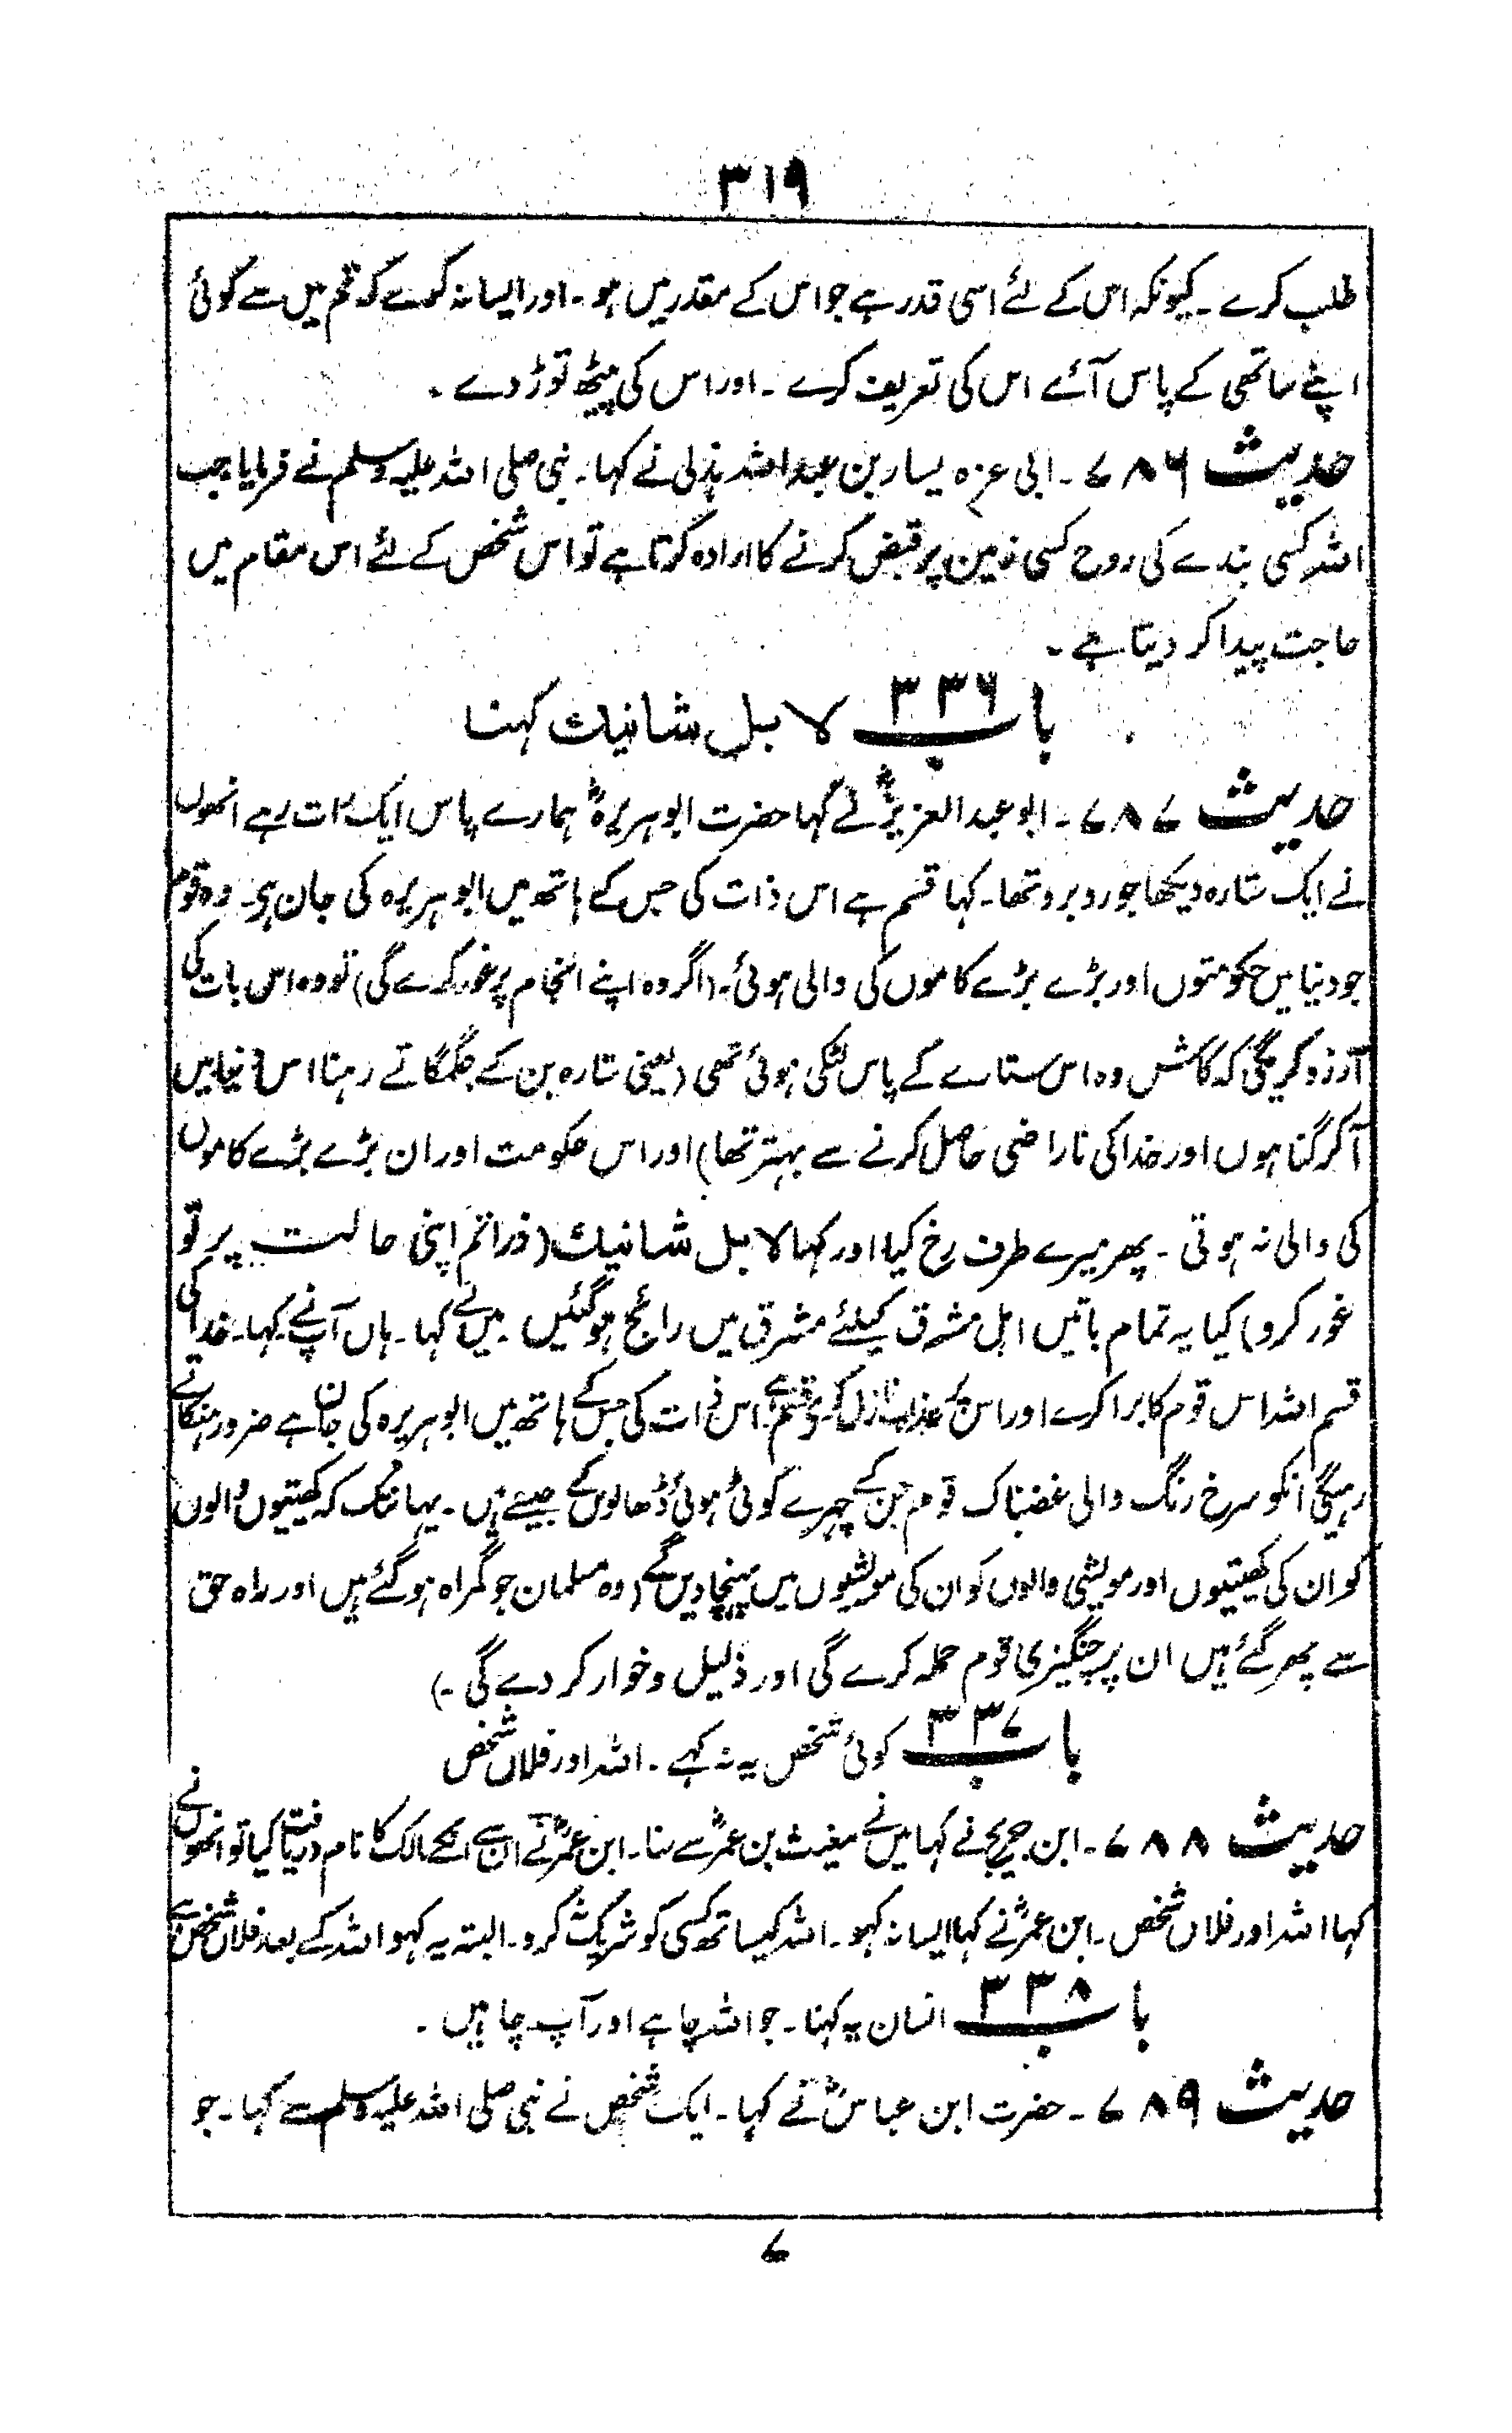 ۳۱۹
طلب کرے ۔ کیونکہ اس کے لئے اسی قدر ہے جو اس کے مقدر میں ہو ۔ اور ایسا نہ کرے کہ تم میں سے کوئی
اپنے ساتھی کے پاس آئے اس کی تعریف کرے ۔ اور اس کی پیٹھ توڑ دے ۔
حدیث ۷۸۶ ۔ ابی عزہ یسار بن عبداللہ ہذلی نے کہا ۔ نبی صلی اللہ علیہ وسلم نے فرمایا جب
اللہ کسی بندے کی روح کسی زمین پر قبض کرنے کا ارادہ کرتا ہے تو اس شخص کے لئے اس مقام میں
حاجت پیدا کر دیتا ہے ۔
باب ۳۳۶ لا بل شانیك کہنا
حدیث ۷۸۷ ۔ ابو عبدالعزیزؒ نے کہا حضرت ابوہریرہؓ ہمارے پاس ایک رات رہے انھوں
نے ایک ستارہ دیکھا جو روبرو تھا ۔ کہا قسم ہے اس ذات کی جس کے ہاتھ میں ابو ہریرہ کی جان ہے ۔ وہ قوم
جو دنیا میں حکومتوں اور بڑے بڑے کاموں کی والی ہوئی ۔ (اگر وہ اپنے انجام پر غور کرے گی) تو وہ اس بات کی
آرزو کریگی کہ کاش وہ اس ستارے کے پاس لٹکی ہوئی تھی (یعنی ستارہ بن کے جگمگاتے رہنا اس دنیا میں
آ کر گناہوں اور خدا کی ناراضی حاصل کرنے سے بہتر تھا) اور اس حکومت اور ان بڑے بڑے کاموں
کی والی نہ ہوتی ۔ پھر میرے طرف رخ کیا اور کہا لا بل شانیك (ذرا تم اپنی حالت پر تو
غور کرو) کیا یہ تمام باتیں اہل مشرق کیلئے مشرق میں رائج ہوگئیں ۔ میں نے کہا ۔ ہاں آپ نے کہا ۔ خدا کی
قسم اللہ اس قوم کا برا کرے اور اس پر عذاب نازل کرے قسم ہے اس ذات کی جس کے ہاتھ میں ابو ہریرہ کی جان ہے ضرور ہنکاتے
رہیگی انکو سرخ رنگ والی غضبناک قوم جن کے چہرے کوٹی ہوئی ڈھالوں کے جیسے ہیں ۔ یہانتک کہ کھیتیوں والوں
کو ان کی کھیتیوں اور مویشی والوں کو ان کی مویشیوں میں پہنچا دیں گے (وہ مسلمان جو گمراہ ہوگئے ہیں اور راہ حق
سے پھر گئے ہیں ان پر چنگیزی قوم حملہ کرے گی اور ذلیل و خوار کر دے گی ۔)
باب ۳۳۷ کوئی شخص یہ نہ کہے ۔ اللہ اور فلاں شخص
حدیث ۷۸۸ ۔ ابن جریج نے کہا میں نے مغیث بن عمرؓ سے سنا ۔ ابن عمرؓ نے ان سے انکے مالک کا نام دریافت کیا تو انھوں نے
کہا اللہ اور فلاں شخص ۔ ابن عمرؓ نے کہا ایسا نہ کہو ۔ اللہ کیساتھ کسی کو شریک نہ کرو ۔ البتہ یہ کہو اللہ کے بعد فلاں شخص ہے
باب ۳۳۸ انسان یہ کہنا ۔ جو اللہ چاہے اور آپ چاہیں ۔
حدیث ۷۸۹ ۔ حضرت ابن عباسؓ نے کہا ۔ ایک شخص نے نبی صلی اللہ علیہ وسلم سے کہا ۔ جو
۷